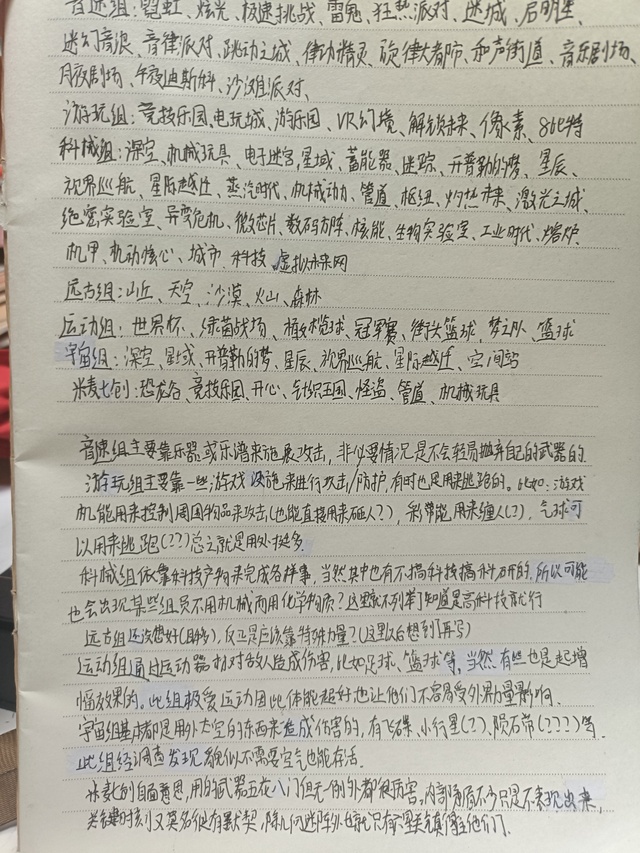 音速组：霓虹、炫光、极速挑战、雷鬼、狂热派对、迷城、启明星、
迷幻音浪、音律派对、跳动之城、律动精灵、旋律大都市、和声街道、音乐剧场、
月夜剧场、午夜迪斯科、沙滩派对、
游玩组：竞技乐园、电玩城、游乐园、VR幻境、解锁未来、像素、8比特
科械组：深空、机械玩具、电子迷宫、星域、蓄能器、迷踪、开普勒的梦、星辰、
视界巡航、星际越迁、蒸汽时代、机械动力、管道、枢纽、灼热未来、激光之城、
绝密实验室、异变危机、微芯片、数码方阵、核能、生物实验室、工业时代、熔炉、
机甲、机动核心、城市、科技、虚拟未来网
远古组：山丘、天空、沙漠、火山、森林
运动组：世界杯、绿茵战场、橄榄球、冠军赛、街头篮球、梦之队、篮球
宇宙组：深空、星域、开普勒的梦、星辰、视界巡航、星际越迁、空间站
米麦七创：恐龙谷、竞技乐园、开心、针织王国、怪盗、管道、机械玩具
音速组主要靠乐器或乐谱来施展攻击，非必要情况是不会轻易抛弃自己的武器的
游玩组主要靠一些游戏设施来进行攻击/防护，有时也是用来逃跑的。比如：游戏
机能用来控制周围物品来攻击(也能直接用来砸人？)，彩带能用来缠人(？)，气球可
以用来逃跑(？？)总之就是用处挺多
科械组依靠科技产物来完成各样事，当然其中也有不搞科技搞科研的，所以可能
也会出现某些组员不用机械而用化学物质？这里就不列举了知道是高科技就行
远古组还没想好()，反正是应该靠特殊力量？(这里以后想到了再写)
运动组通过运动器材对敌人造成伤害，比如足球、篮球等，当然有些也是起增
幅效果的。此组极爱运动因此体能超好也让他们不容易受外界力量影响
宇宙组基本都是用外太空的东西来造成伤害的，有飞碟、小行星(？)、陨石带(？？？)等
此组经调查发现貌似不需要空气也能存活
自面意思，用的武器五花八门但无一例外都很厉害，内部矛盾不少只是不表现出来，
关键时刻又莫名很有默契，除几何迷阵外也就只有